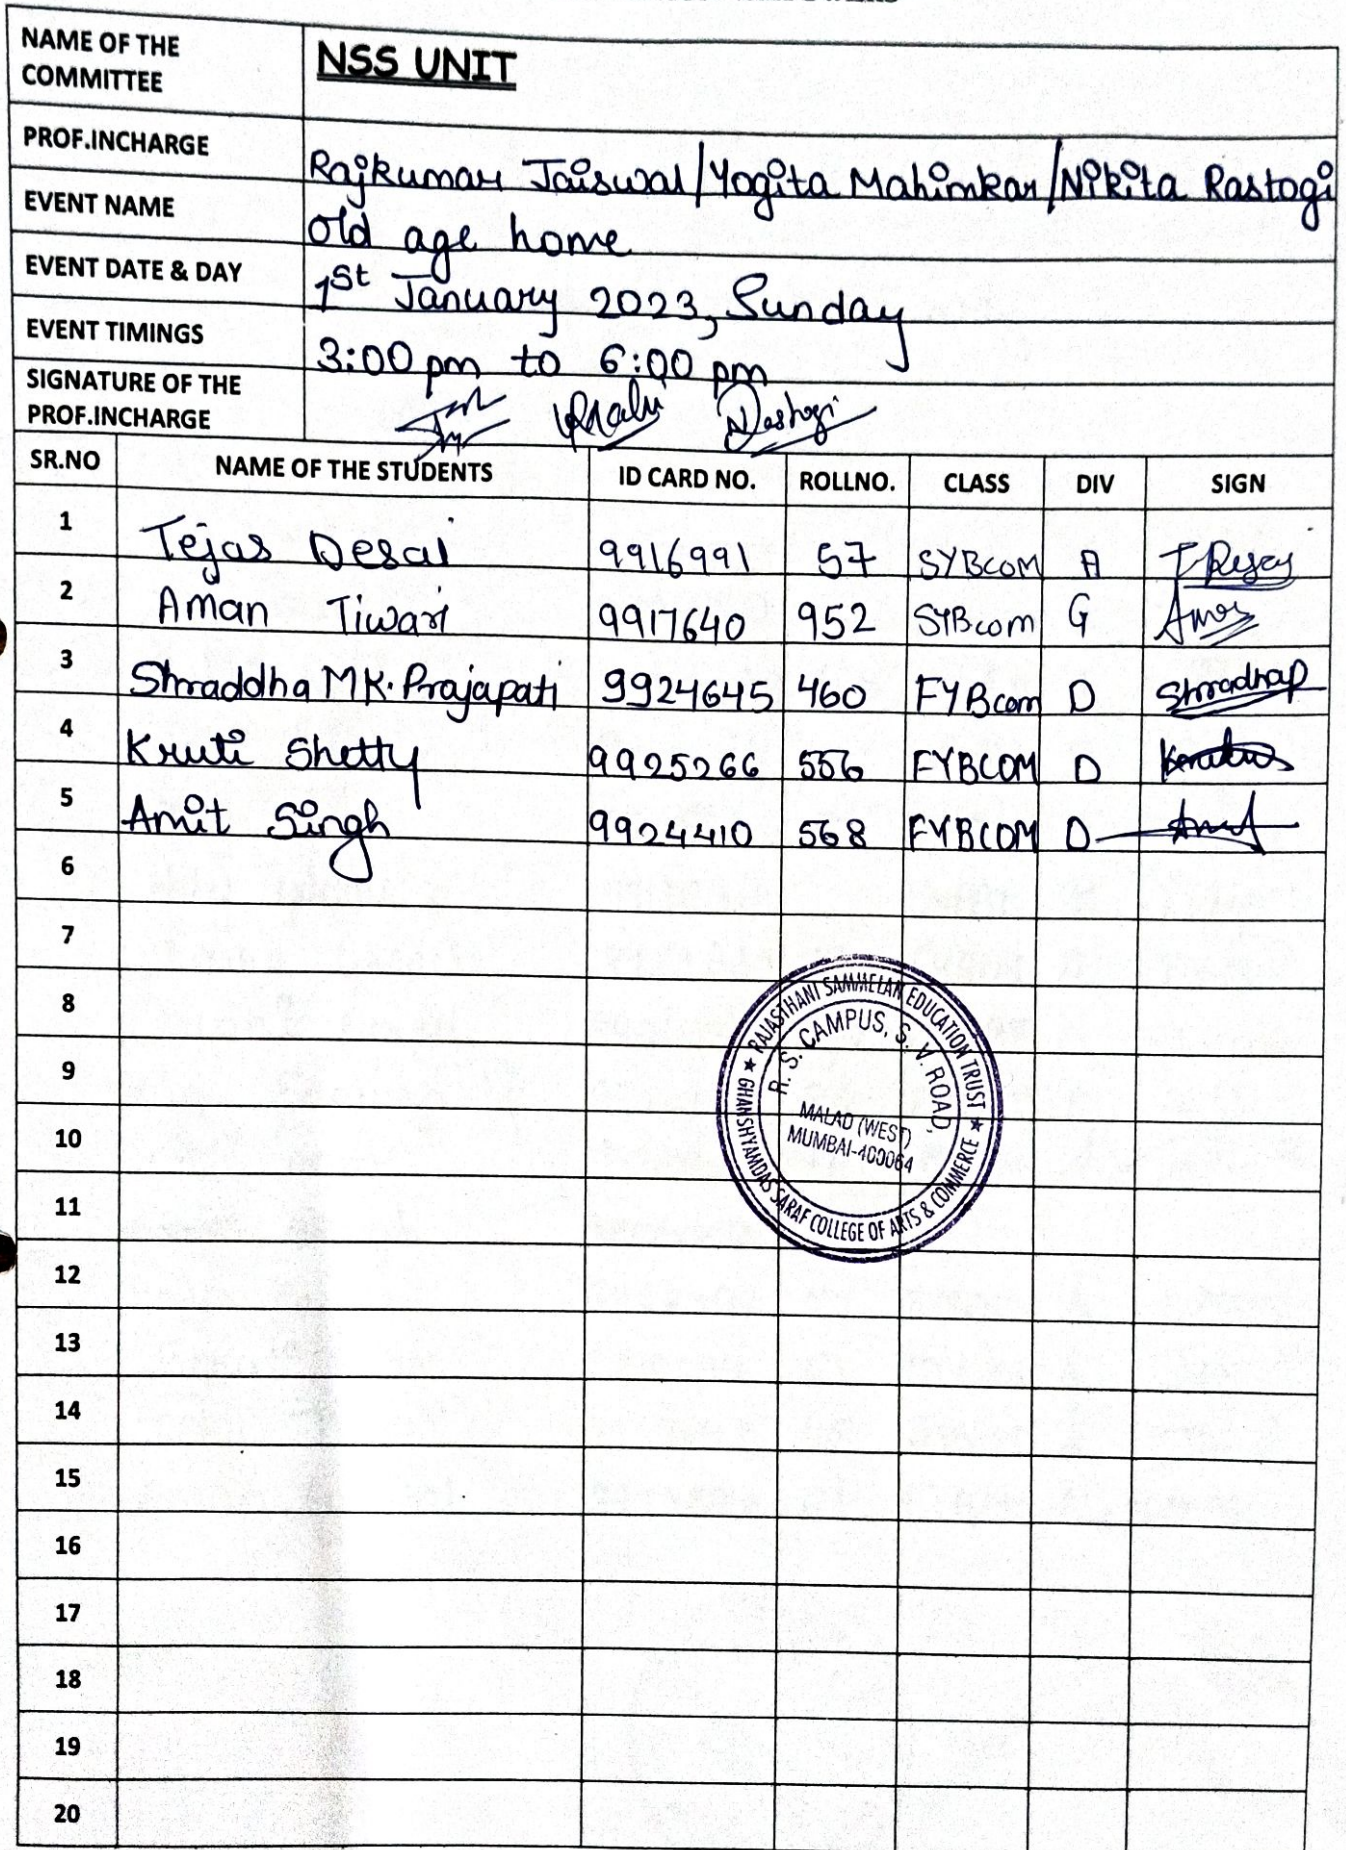 NAME OF THE COMMITTEE NSS UNIT
PROF.INCHARGE Rajkumar Jaiswal/Yogita Mahimkar/Nikita Rastogi
EVENT NAME Old age home
EVENT DATE & DAY 1st January 2023, Sunday
EVENT TIMINGS 3:00 pm to 6:00 pm
SIGNATURE OF THE PROF.INCHARGE
SR.NO NAME OF THE STUDENTS ID CARD NO. ROLLNO. CLASS DIV SIGN
1 Tejas Desai 9916991 57 SYBCOM A
2 Aman Tiwari 9917640 952 SYBcom G
3 Shraddha MK. Prajapati 9924645 460 FYBcom D Shradhap
4 Kruti Shetty 9925266 556 FYBCOM D
5 Amit Singh 9924410 568 FYBCOM D
6
7
8
9
10
11
12
13
14
15
16
17
18
19
20
★ RAJASTHANI SAMMELAN EDUCATION TRUST ★
GHANSHYAMDAS SARAF COLLEGE OF ARTS & COMMERCE
R. S. CAMPUS, S. V. ROAD,
MALAD (WEST)
MUMBAI-400064